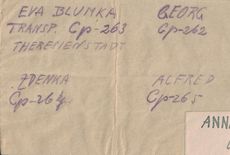 EVA BLUMKA
TRANSP. Cp-263
THERESIENSTADT
GEORG
Cp-262
ZDENKA
Cp-264
ALFRED
Cp-265
ANNA